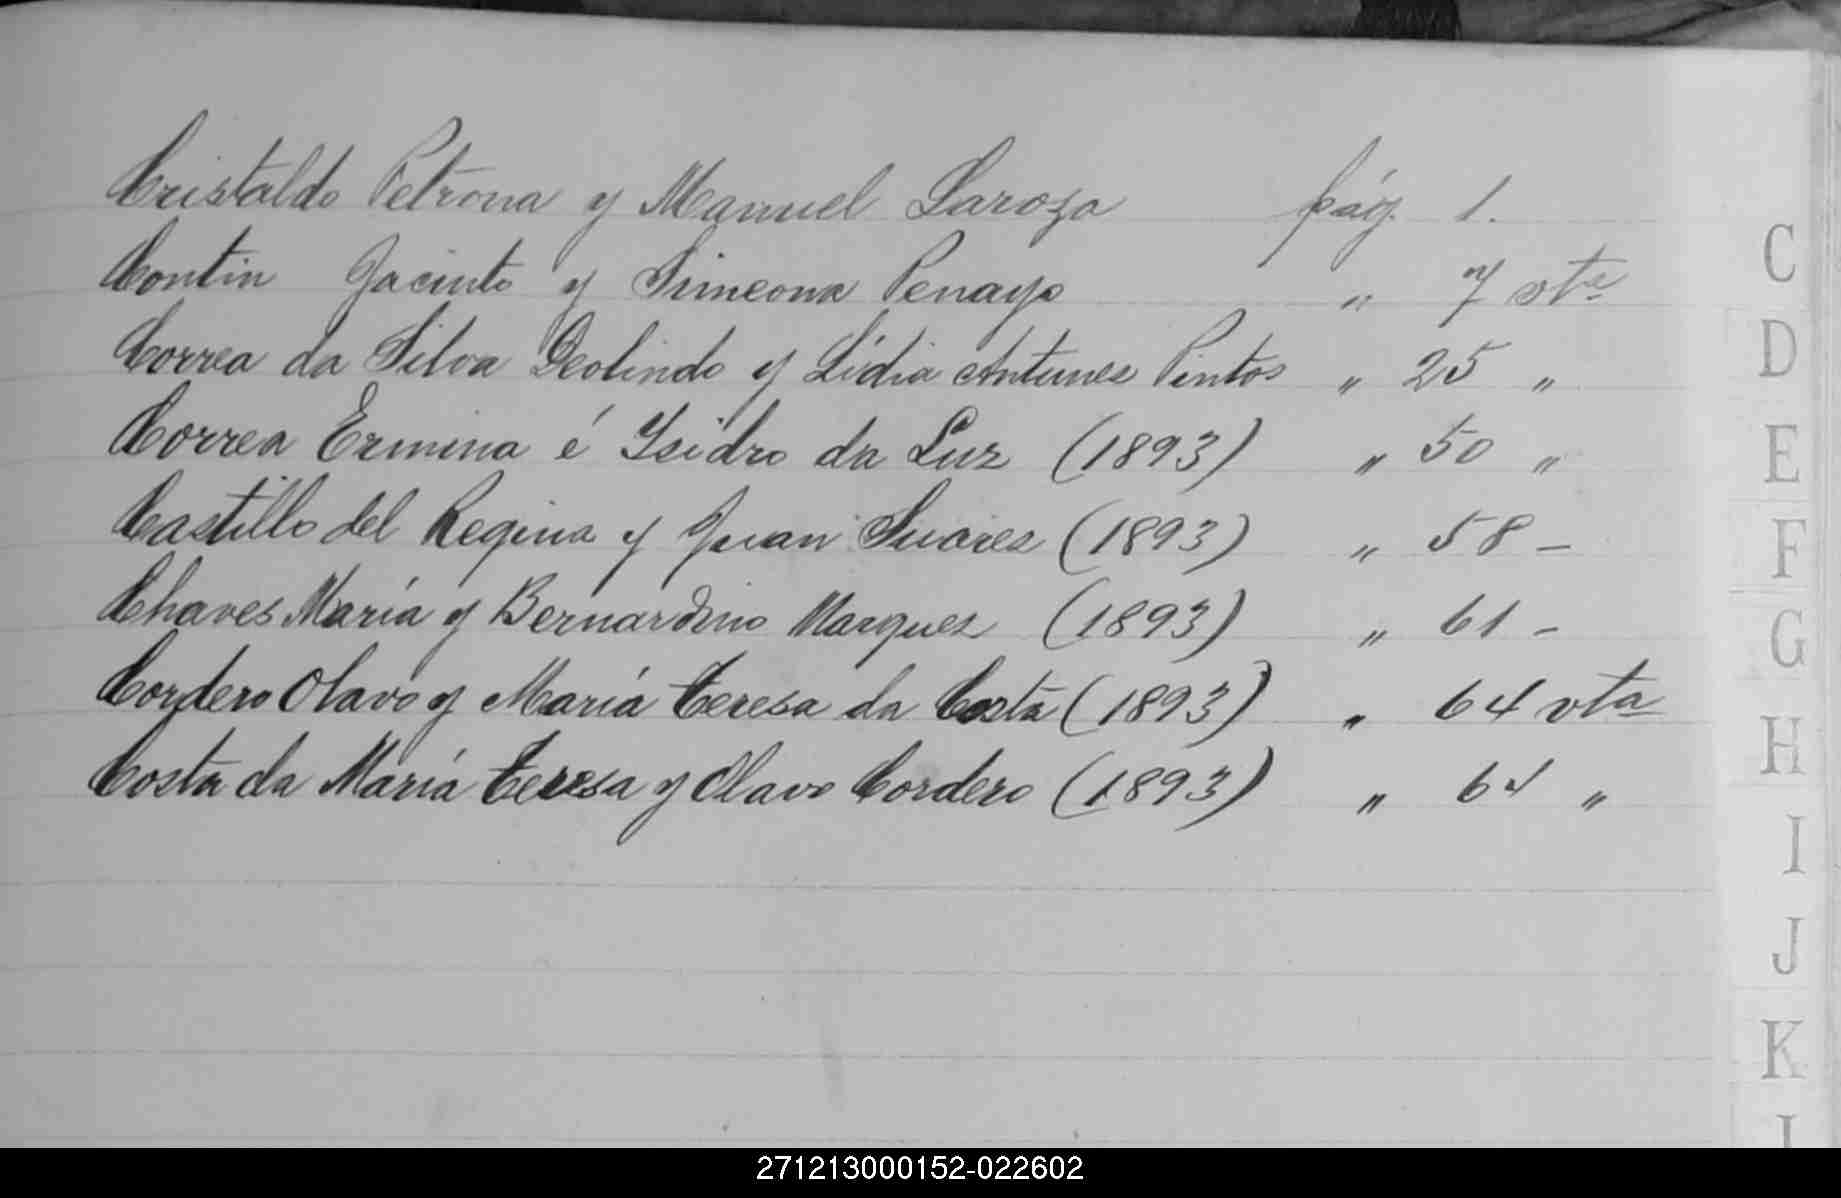 Cristaldo Petrona y Manuel Laroza pág. 1.
Contin Jacinto y Simeona Penayo " 7 vta
Correa da Silva Deolindo y Lidia Antunes Pintos " 25 "
Correa Ermina é Ysidro da Luz (1893) " 50 "
Castillo del Regina y Juan Suares (1893) " 58 -
Chaves María y Bernardino Marques (1893) " 61 -
Cordero Olavo y María Teresa da Costa (1893) " 64 vta
Costa da María Teresa y Olavo Cordero (1893) " 64 "
C
D
E
F
G
H
I
J
K
271213000152-022602